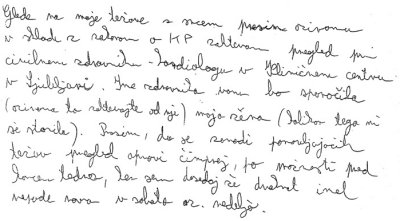 Glede na moje težave s srcem prosim oziroma
v skladu z zakonom o KP zahtevam pregled pri
civilnem zdravniku - kardiologu v Kliničnem centru
v Ljubljani. Ime zdravnika vam bo sporočila
(oziroma to zahtevajte od nje) moja žena (kolikor tega ni
že storila). Prosim, da se zaradi ponavljajočih
težav pregled opravi čimprej, po možnosti pred
koncem tedna, ker sem doslej že dvakrat imel
napade ravno v soboto oz. nedeljo.